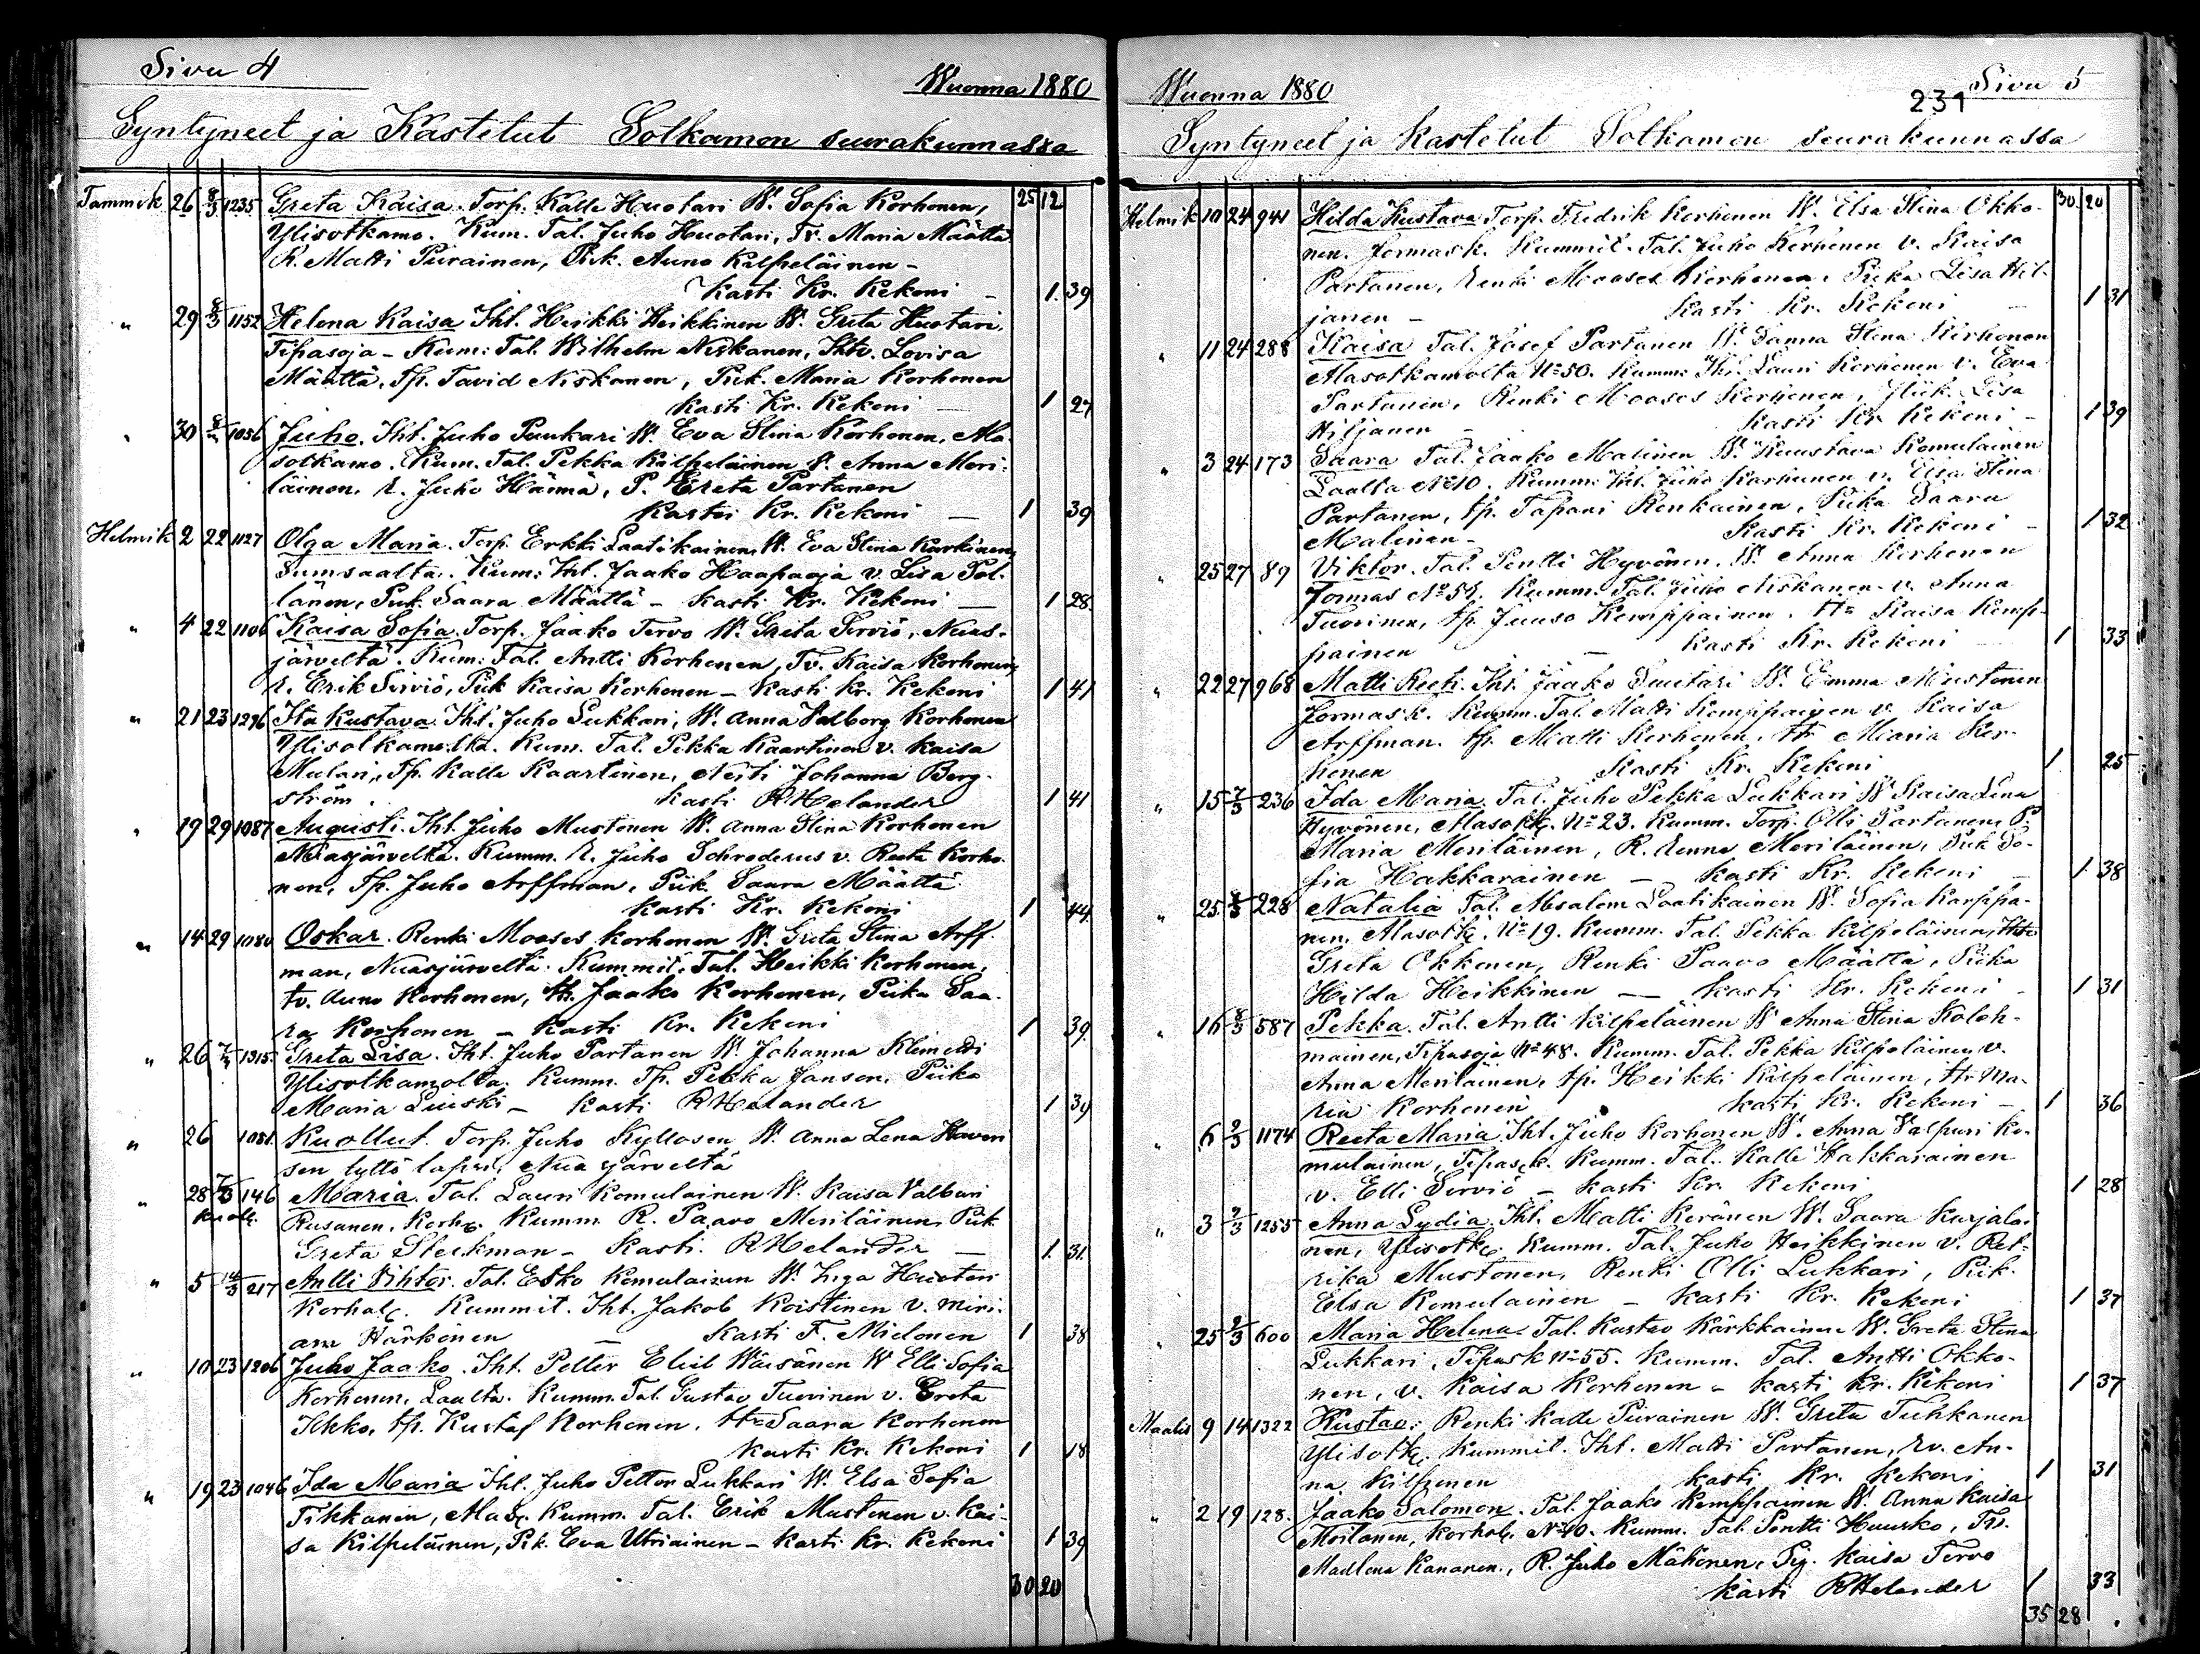 Sivu 4
Wuonna 1880
Syntyneet ja Kastetut Sotkamon seurakunnassa
25 12
Tammik. 26 8/3 1235 Greta Kaisa. Torp. Kalle Huotari W. Sofia Korhonen,
Ylisotkamo. Kum. Tal. Juho Huotari, Tv. Maria Määttä
R. Matti Piirainen, Piik. Auno Kilpeläinen –
Kasti Kr. Kekoni – 1. 39
" 29 8/3 1152 Helena Kaisa Iht. Heikki Heikkinen W. Greta Huotari,
Tipasoja – Kum: Tal. Wilhelm Niskanen, Ihtv. Lovisa
Määttä, Tp. Tavid Niskanen, Piik. Maria Korhonen
Kasti Kr. Kekoni – 1 27
" 30 1056 Juho. Iht. Juho Puukari W. Eva Stina Korhonen, Ala-
sotkamo. Kum. Tal. Pekka Kilpeläinen v. Anna Meri-
läinen, R. Juho Hännä, P. Greta Partanen
Kastoi Kr. Kekoni – 1 39
Helmik 2 22 1127 Olga Maria. Torp. Erkki Laatikainen, W. Eva Stina Karhinen,
Sumsaalta. Kum: Iht. Jaako Haapaoja v. Lisa Pöl-
länen, Piik. Saara Määttä – Kasti Kr. Kekoni – 1 28
" 4 22 1106 Kaisa Sofia. Torp. Jaako Tervo W. Greta Serviö, Nuas-
järveltä. Kum: Tal. Antti Korhonen, Tv. Kaisa Korhonen,
R. Erik Serviö, Piik Kaisa Korhonen – Kasti Kr. Kekoni 1 41
" 21 23 1296 Ita Kustava. Iht. Juho Lukkari, W. Anna Valborg Korhonen
Ylisotkamolta. Kum. Tal. Pekka Kaartinen v. Kaisa
Mulari, Tp. Kalle Kaartinen, Neiti Johanna Berg-
ström. Kasti R Helander 1 41
" 19 29 1087 Augusti. Iht. Juho Mustonen W. Anna Stina Korhonen
Nuasjärveltä. Kumm. R. Juho Schroderus v. Reeta Korho-
nen, Tp. Juho Arffman, Piik. Saara Määttä
Kasti Kr. Kekoni 1 44
" 14 29 1080 Oskar. Renki Mooses Korhonen W. Greta Stina Arff-
man, Nuasjärveltä. Kummit: Tal. Heikki Korhonen,
tv. Auno Korhonen, tp. Jaako Korhonen, Piika Saa-
ra Korhonen – Kasti Kr. Kekoni 1 39
" 26 1315 Greta Lisa. Iht. Juho Partanen W. Johanna Klimetti
Ylisotkamolta. Kumm. Tp. Pekka Janson, Piika
Maria Linski – Kasti R Helander 1 39
" 26 1081 Kuollut. Torp. Juho Kyllösen W. Anna Lena Havori
sen tyttö lapsi, Nuasjärveltä
" 28 7/3 146 Maria. Tal. Lauri Komulainen W. Kaisa Valburi
kuoll. Rusanen, Korh. Kumm. R. Paavo Meriläinen, Piik
Greta Steckman – Kasti. R Helander – 1. 31.
" 5 14/3 217 Antti Vihtor. Tal. Esko Komulainen W. Inga Huotari
Korhol. Kummit. Iht. Jakob Koistinen v. Miri-
am Härkönen – Kasti F. Mielonen 1 38
" 10 23 1206 Juho Jaako. Iht. Petter Eliel Väisänen W Elli Sofia
Korhonen, Laalta. Kumm. Tal. Gustav Tuovinen v. Greta
Ikko, tp. Kustaf Korhonen. Ttr Saara Korhonen
Kasti Kr. Kekoni 1 18
" 19 23 1046 Ida Maria Iht. Juho Petter Lukkari W. Elsa Sofia
Tikkanen, Alas. Kumm. Tal. Erik Mustonen v. Kai-
sa Kilpeläinen, Pik. Eva Utriainen – Kasti Kr. Kekoni 1 39
30 20
Wuonna 1880
231
Sivu 5
Syntyneet ja Kastetut Sotkamon seurakunnassa
30. 20
Helmik 10 24 941 Hilda Kustava Torp. Fredrik Korhonen W. Elsa Stina Okko-
nen. Jormask. Kummit. Tal. Juho Korhonen v. Kaisa
Partanen, Renki Mooses Korhonen, Piika Lisa Hil-
janen – Kasti Kr. Kekoni 1 31
" 11 24 288 Kaisa Tal. Josef Partanen W. Sanna Stina Korhonen
Alasotkamolta No 50. Kumm: Iht. Lauri Korhonen v. Eva
Partanen, Renki Mooses Korhonen, Piik. Lisa
Hiljanen – Kasti Kr Kekoni – 1 39
" 3 24 173 Saara Tal. Jaako Malinen W. Kuustava Komulainen
Laalta No 10. Kumm: Iht. Juho Karhunen v. Elsa Stina
Partanen, tp. Tapani Ronkainen, Piika Saara
Malinen – Kasti Kr. Kekoni – 1 32
" 25 27 89 Viktor. Tal. Pentti Hyvönen. W. Anna Korhonen
Jormas No 54. Kumm. Tal. Juho Niskanen v. Anna
Tuovinen, tp. Juuso Kemppainen. Ttr Kaisa Kemp-
painen – Kasti Kr. Kekoni 1 33
" 22 27 968 Matti Reeti. Iht. Jaako Sautari W. Emma Mustonen
Jormask. Kumm. Tal. Matti Kemppainen v. Kaisa
Arffman. tp. Matti Korhonen. ttr Maria Kor-
honen Kasti Kr. Kekoni 1 25
" 15 7/3 236 Ida Maria. Tal. Juho Pekka Lukkari W Kaisa Lena
Hyvönen, Alasotk. No 23. Kumm. Torp. Olli Partanen, P.
Maria Meriläinen, R. Renne Meriläinen, Piik So-
fia Hakkarainen – Kasti Kr. Kekoni 1 38
" 25 8/3 228 Natalia Tal. Absalom Laatikainen W. Sofia Karppa-
nen. Alasotk. No 19. Kumm. Tal. Pekka Kilpeläinen, Ihtv
Greta Okkonen, Renki Paavo Määttä, Piika
Hilda Heikkinen — Kasti Kr. Kekoni – 1 31
" 16 8/3 587 Pekka. Tal. Antti Kilpeläinen W Anna Stina Koloh-
mainen, Tipasoja No 48. Kumm. Tal. Pekka Kilpeläinen v.
Anna Meriläinen, tp. Heikki Kilpeläinen, ttr Ma-
ria Korhonen Kasti Kr. Kekoni – 1 36
" 6 2/3 1174 Reeta Maria Iht. Juho Korhonen W. Anna Valpuri Ko-
mulainen, Tipask. Kumm. Tal. Kalle Hakkarainen
v. Elli Serviö – Kasti Kr. Kekoni 1 28
" 3 2/3 1255 Anna Lydia. Iht. Matti Keränen W. Saara Karjalai-
nen, Ylisotk. Kumm. Tal. Juho Heikkinen v. Ret-
rika Mustonen, Renki Olli Lukkari, Piik.
Elsa Komulainen – Kasti Kr. Kekoni 1 37
" 25 2/3 600 Maria Helena. Tal. Kustav Kärkkäinen W. Greta Stina
Lukkari, Tipask No 55. Kumm. Tal. Antti Okko-
nen, v. Kaisa Korhonen – Kasti Kr. Kekoni 1 37
Maalis 9 14 1322 Kustav: Renki Kalle Piirainen W. Greta Tuhkanen
Ylisotk. Kummit. Iht. Matti Partanen, Rv. An-
na Kilponen Kasti Kr. Kekoni 1 31
" 2 19 128. Jaako Salomon. Tal. Jaako Kemppainen W. Anna Kaisa
Moilanen, Korhol. No 40. Kumm. Tal. Pentti Huusko, Tv.
Madlena Kananen, R. Juho Mäkönen, Pg. Kaisa Tervo
Kasti R Helander 1 33
35 28